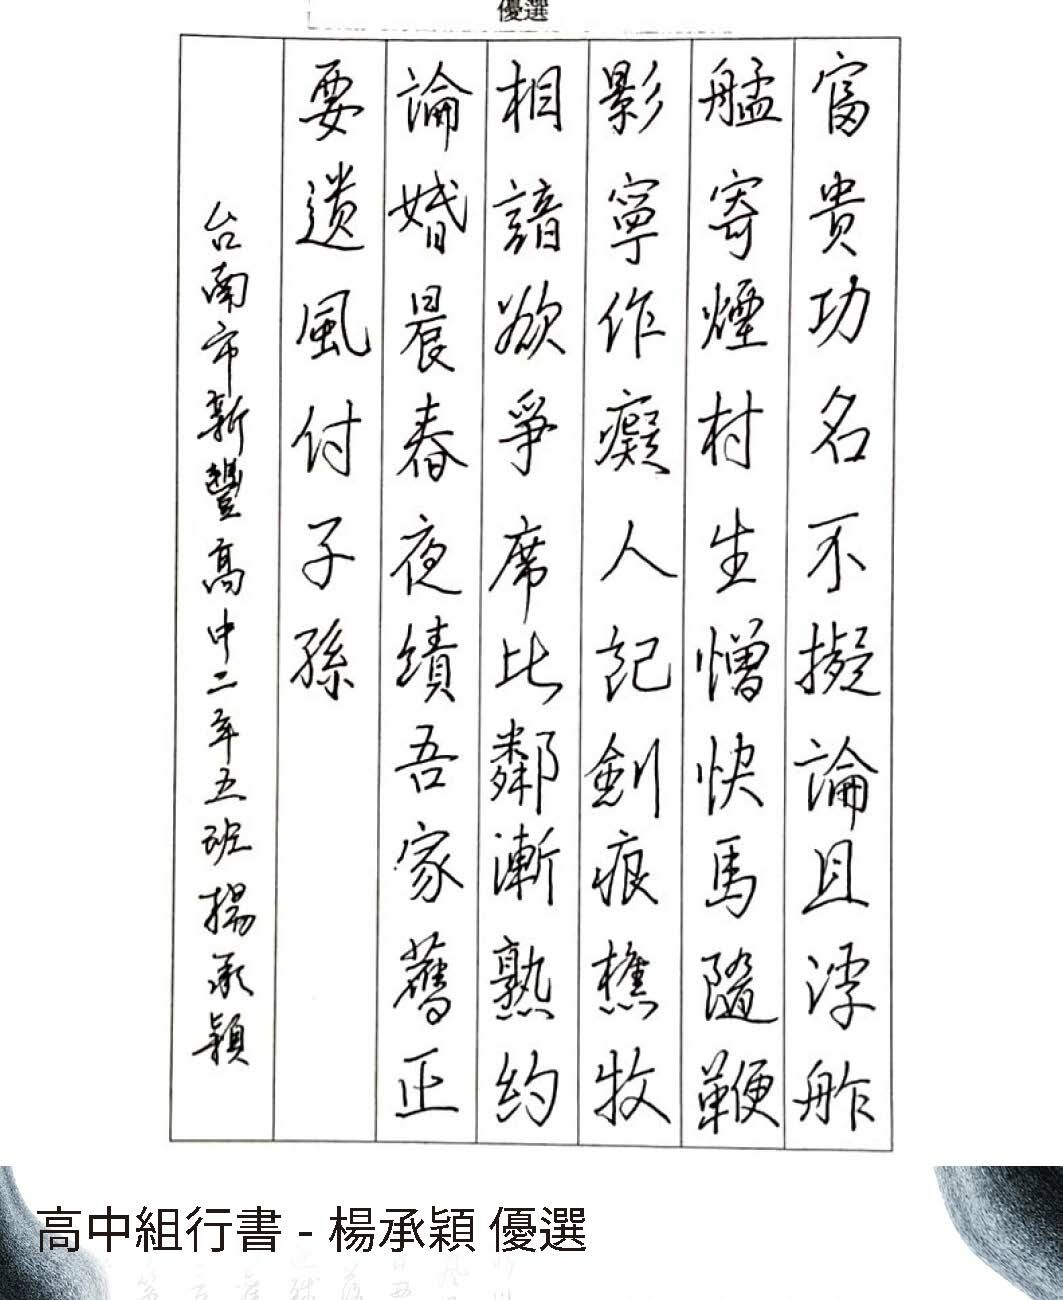 優選
富貴功名不擬論且浮舴
艋寄煙村生憎快馬隨鞭
影寧作癡人記劍痕樵牧
相諳欲爭席比鄰漸熟約
論婚晨舂夜績吾家舊正
要遺風付子孫
台南市新豐高中二年五班楊承穎
高中組行書 - 楊承穎 優選